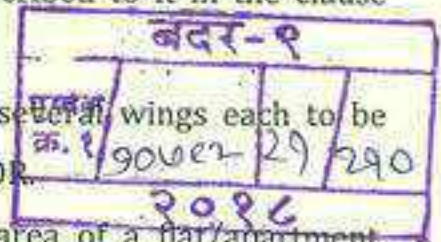 to it in the clause
बदर-१
several wings each to be
क्र. १ २१ २१०
२०१८
area of a flat/apartment